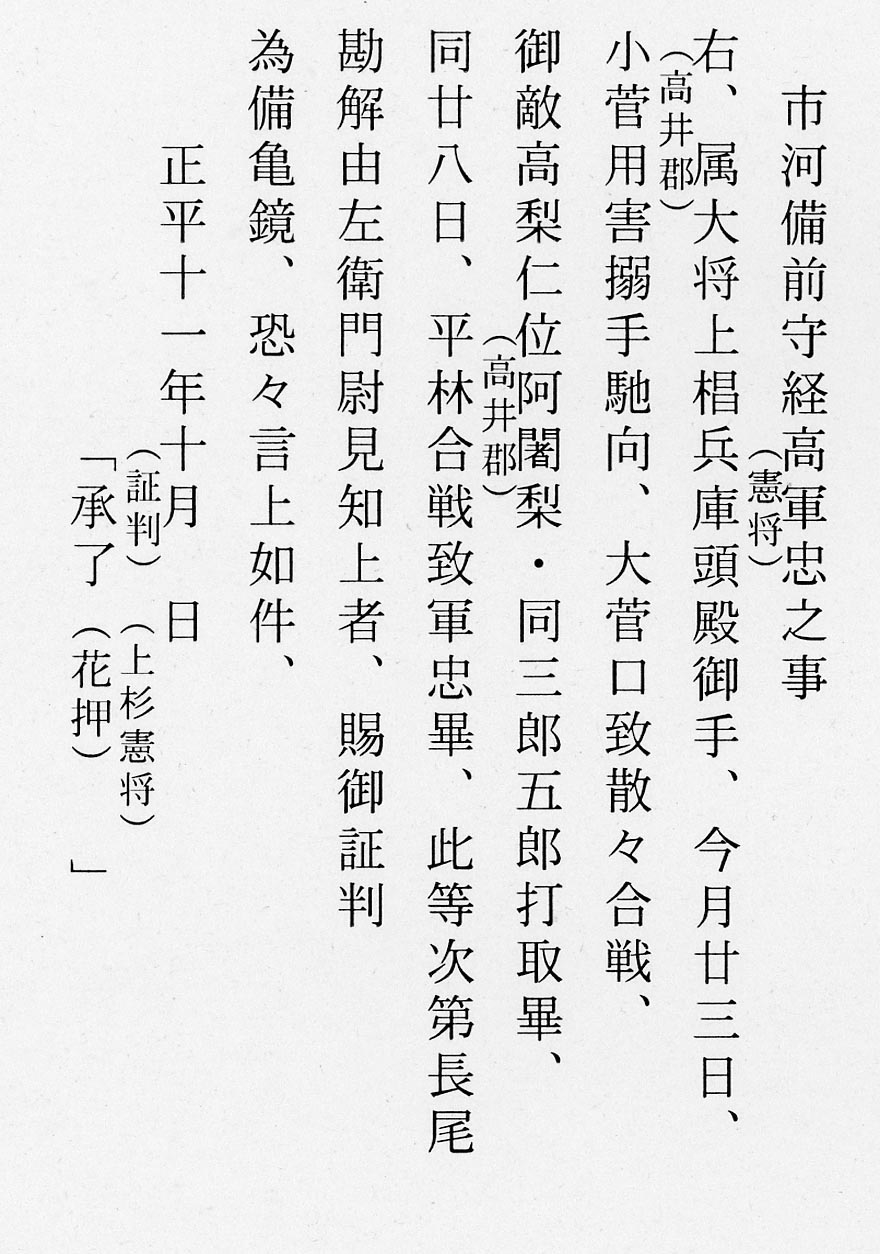 市河備前守経高軍忠之事
（憲将）
右、属大将上椙兵庫頭殿御手、今月廿三日、
（高井郡）
小菅用害搦手馳向、大菅口致散々合戦、
御敵高梨仁位阿闍梨・同三郎五郎打取畢、
（高井郡）
同廿八日、平林合戦致軍忠畢、此等次第長尾
勘解由左衛門尉見知上者、賜御証判
為備亀鏡、恐々言上如件、
正平十一年十月　日
（証判）（上杉憲将）
「承了（花押）」